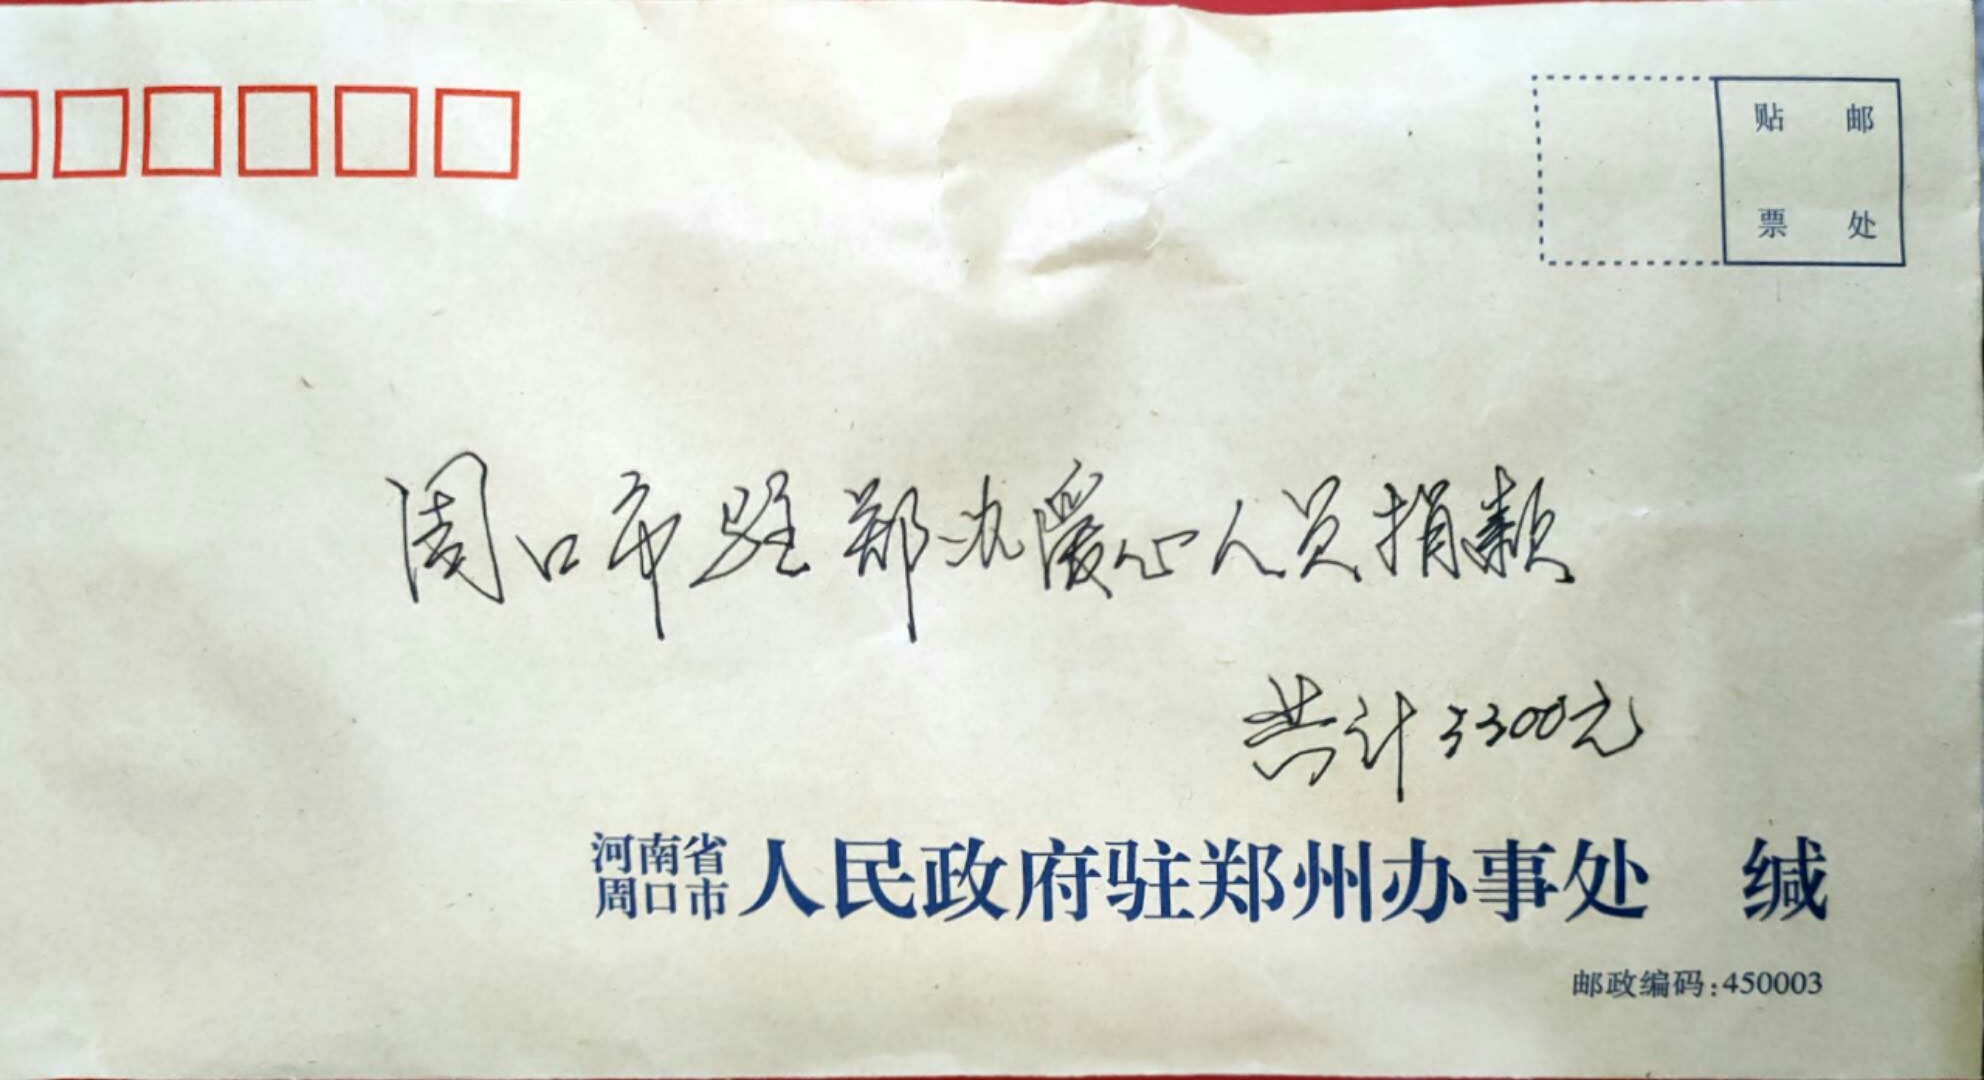 贴 邮
票 处
周口市驻郑办爱心人员捐款
共计3300元
河南省
周口市
人民政府驻郑州办事处 缄
邮政编码:450003